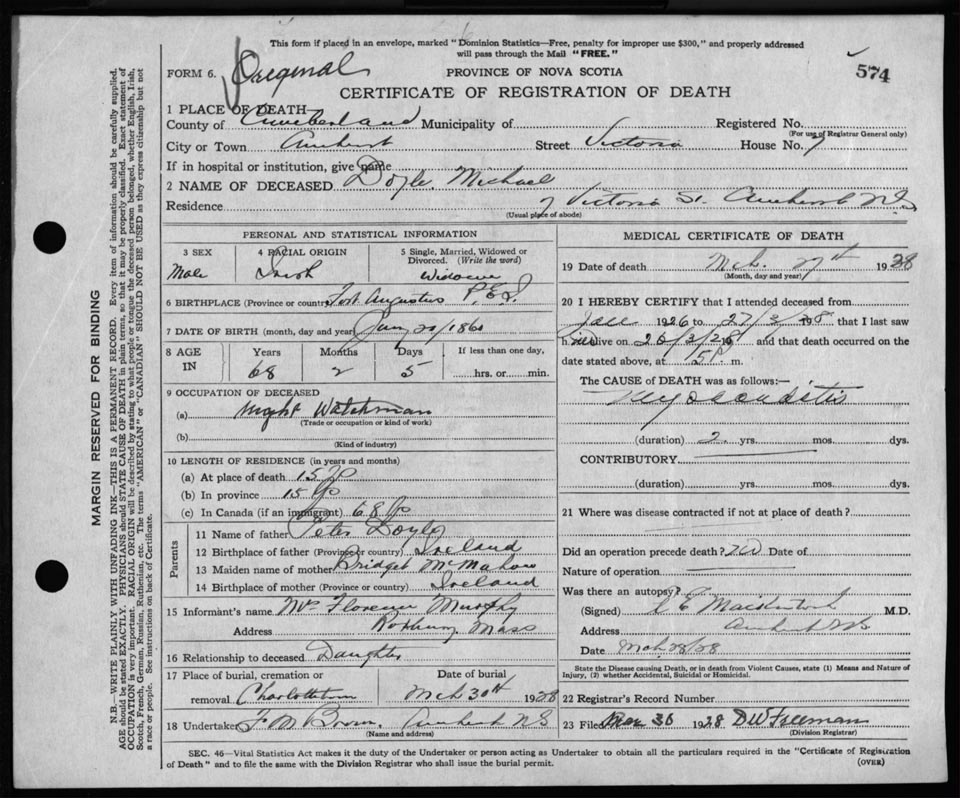 This form if placed in an envelope, marked "Dominion Statistics—Free, penalty for improper use $300," and properly addressed
will pass through the Mail "FREE."
FORM 6. Original
PROVINCE OF NOVA SCOTIA
574
CERTIFICATE OF REGISTRATION OF DEATH
1 PLACE OF DEATH
County of Cumberland Municipality of Registered No.
(For use of Registrar General only)
City or Town Amherst Street Victoria House No. 7
If in hospital or institution, give name
2 NAME OF DECEASED Doyle Michael
Residence 7 Victoria St. Amherst N S
(Usual place of abode)
PERSONAL AND STATISTICAL INFORMATION
3 SEX 4 RACIAL ORIGIN 5 Single, Married, Widowed or Divorced. (Write the word)
Male Irish Widower
6 BIRTHPLACE (Province or country) Fort Augustus P.E.I.
7 DATE OF BIRTH (month, day and year) Jany 1860
8 AGE IN Years Months Days If less than one day,
68 2 5 hrs. or min.
9 OCCUPATION OF DECEASED
(a) Night Watchman
(Trade or occupation or kind of work)
(b)
(Kind of industry)
10 LENGTH OF RESIDENCE (in years and months)
(a) At place of death 15
(b) In province 15
(c) In Canada (if an immigrant) 68
Parents
11 Name of father Peter Doyle
12 Birthplace of father (Province or country) Ireland
13 Maiden name of mother Bridget McMahon
14 Birthplace of mother (Province or country) Ireland
15 Informant's name Mrs Florence Murphy
Address Roxbury Mass
16 Relationship to deceased Daughter
17 Place of burial, cremation or Date of burial
removal Charlottetown Mch 30th 1928
18 Undertaker F M Brown Amherst N S
(Name and address)
MEDICAL CERTIFICATE OF DEATH
19 Date of death Mch. 27th 1928
(Month, day and year)
20 I HEREBY CERTIFY that I attended deceased from
1926 to 27/3/1928 that I last saw
alive on and that death occurred on the
date stated above, at m.
The CAUSE OF DEATH was as follows:—
Myocarditis
(duration) 2 yrs. mos. dys.
CONTRIBUTORY
(duration) yrs. mos. dys.
21 Where was disease contracted if not at place of death?
Did an operation precede death? No Date of
Nature of operation
Was there an autopsy?
(Signed) Mackintosh M.D.
Address Amherst NS
Date Mch 28/28
State the Disease causing Death, or in death from Violent Causes, state (1) Means and Nature of
Injury, (2) whether Accidental, Suicidal or Homicidal.
22 Registrar's Record Number
23 Filed Mar 30 1928 D W Freeman
(Division Registrar)
SEC. 46—Vital Statistics Act makes it the duty of the Undertaker or person acting as Undertaker to obtain all the particulars required in the "Certificate of Registration
of Death" and to file the same with the Division Registrar who shall issue the burial permit. (OVER)
MARGIN RESERVED FOR BINDING
N.B.—WRITE PLAINLY WITH UNFADING INK—THIS IS A PERMANENT RECORD. Every item of information should be carefully supplied.
AGE should be stated EXACTLY. PHYSICIANS should STATE CAUSE OF DEATH in plain terms, so that it may be properly classified. Exact statement of
OCCUPATION is very important. RACIAL ORIGIN will be described by stating to what people or tongue the deceased person belonged, whether English, Irish,
Scotch, French, German, Russian, Ruthenian, etc. The terms "AMERICAN" or "CANADIAN" SHOULD NOT BE USED as they express citizenship but not
a race or people. See instructions on back of Certificate.